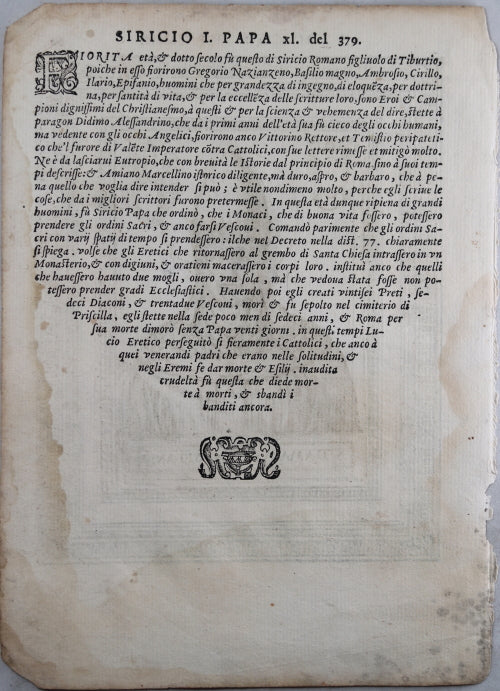 SIRICIO I. PAPA xl. del 379.
FIORITA età, & dotto secolo fù questo di Siricio Romano figliuolo di Tiburtio,
poiche in esso fiorirono Gregorio Nazianzeno, Basilio magno, Ambrosio, Cirillo,
Ilario, Epifanio, huomini che per grandezza di ingegno, di eloquẽza, per dottri
na, per santità di vita, & per la eccellẽza delle scritture loro, sono Eroi & Cam
pioni dignissimi del Christianesmo, à questi & per la scienza & vehemenza del dire, stette à
paragon Didimo Alessandrino, che da i primi anni dell'età sua fù cieco degli occhi humani,
ma vedente con gli occhi Angelici, fiorirono anco Vittorino Rettore, et Temistio peripateti
co che'l furore di Valẽte Imperatore cõtra Cattolici, con sue lettere rimesse et mitigò molto.
Ne è da lasciarui Eutropio, che con breuità le Istorie dal principio di Roma fino à suoi tem
pi descrisse: & Amiano Marcellino istorico diligente, mà duro, aspro, & barbaro, che à pe
na quello che voglia dire intender si può; è vtile nondimeno molto, perche egli scriue le
cose, che da i migliori scrittori furono pretermesse. In questa età dunque ripiena di grandi
huomini, fù Siricio Papa che ordinò, che i Monaci, che di buona vita fossero, potessero
prendere gli ordini Sacri, & anco farsi Vescoui. Comandò parimente che gli ordini Sa-
cri con varij spatij di tempo si prendessero: ilche nel Decreto nella dist. 77. chiaramente
si spiega. volse che gli Eretici che ritornassero al grembo di Santa Chiesa intrassero in vn
Monasterio, & con digiuni, & orationi macerassero i corpi loro. instituì anco che quelli
che hauessero hauuto due mogli, ouero vna sola, mà che vedoua stata fosse non po-
tessero prender gradi Ecclesiastici. Hauendo poi egli creati vintisei Preti, se-
deci Diaconi, & trentadue Vesconi, morì & fu sepolto nel cimiterio di
Priscilla, egli stette nella sede poco men di sedeci anni, & Roma per
sua morte dimorò senza Papa venti giorni. in questi tempi Lu-
cio Eretico perseguitò si fieramente i Cattolici, che anco à
quei venerandi padri che erano nelle solitudini, &
negli Eremi fe dar morte & Esilij. inaudita
crudeltà fù questa che diede mor-
te à morti, & sbandì i
banditi ancora.